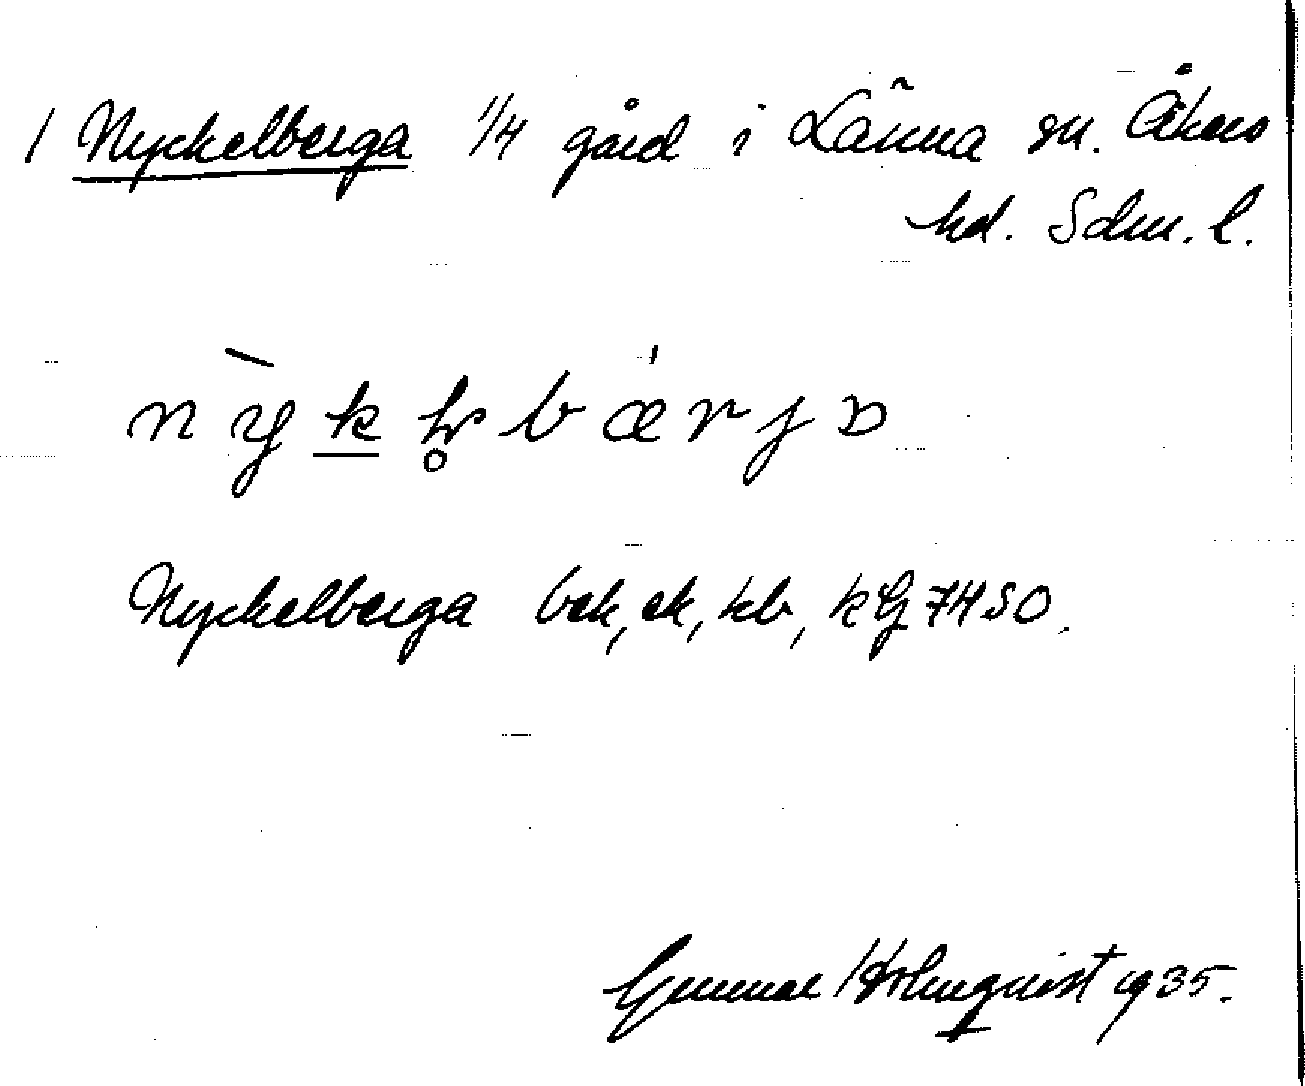 1 Nyckelberga 1/4 gård i Länna sn. Åkers
hd. Sdm. l.
Nyckelberga bok, ek, kb, kG 74 SO.
Gunnar Holmquist 1935.